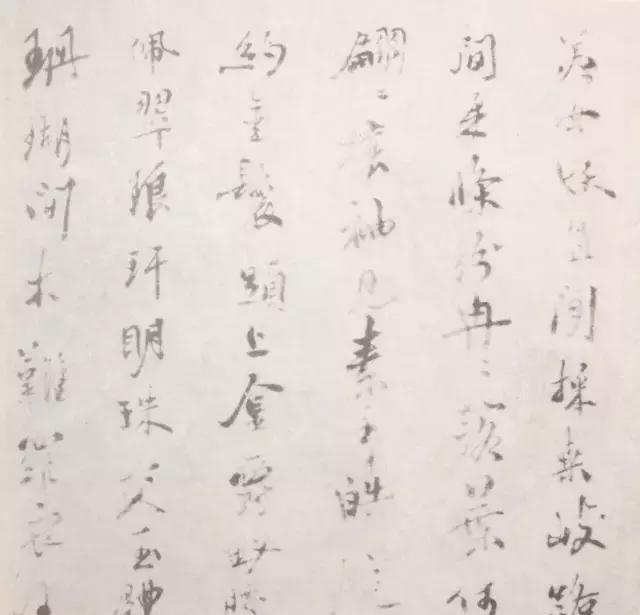 美女妖且閑採桒歧路
間柔條紛冉〻落葉何
翩〻攘袖見素手皓腕
約金鬟頭上金爵釵腰
佩翠琅玕明珠交玉體
珊瑚間木難羅衣何